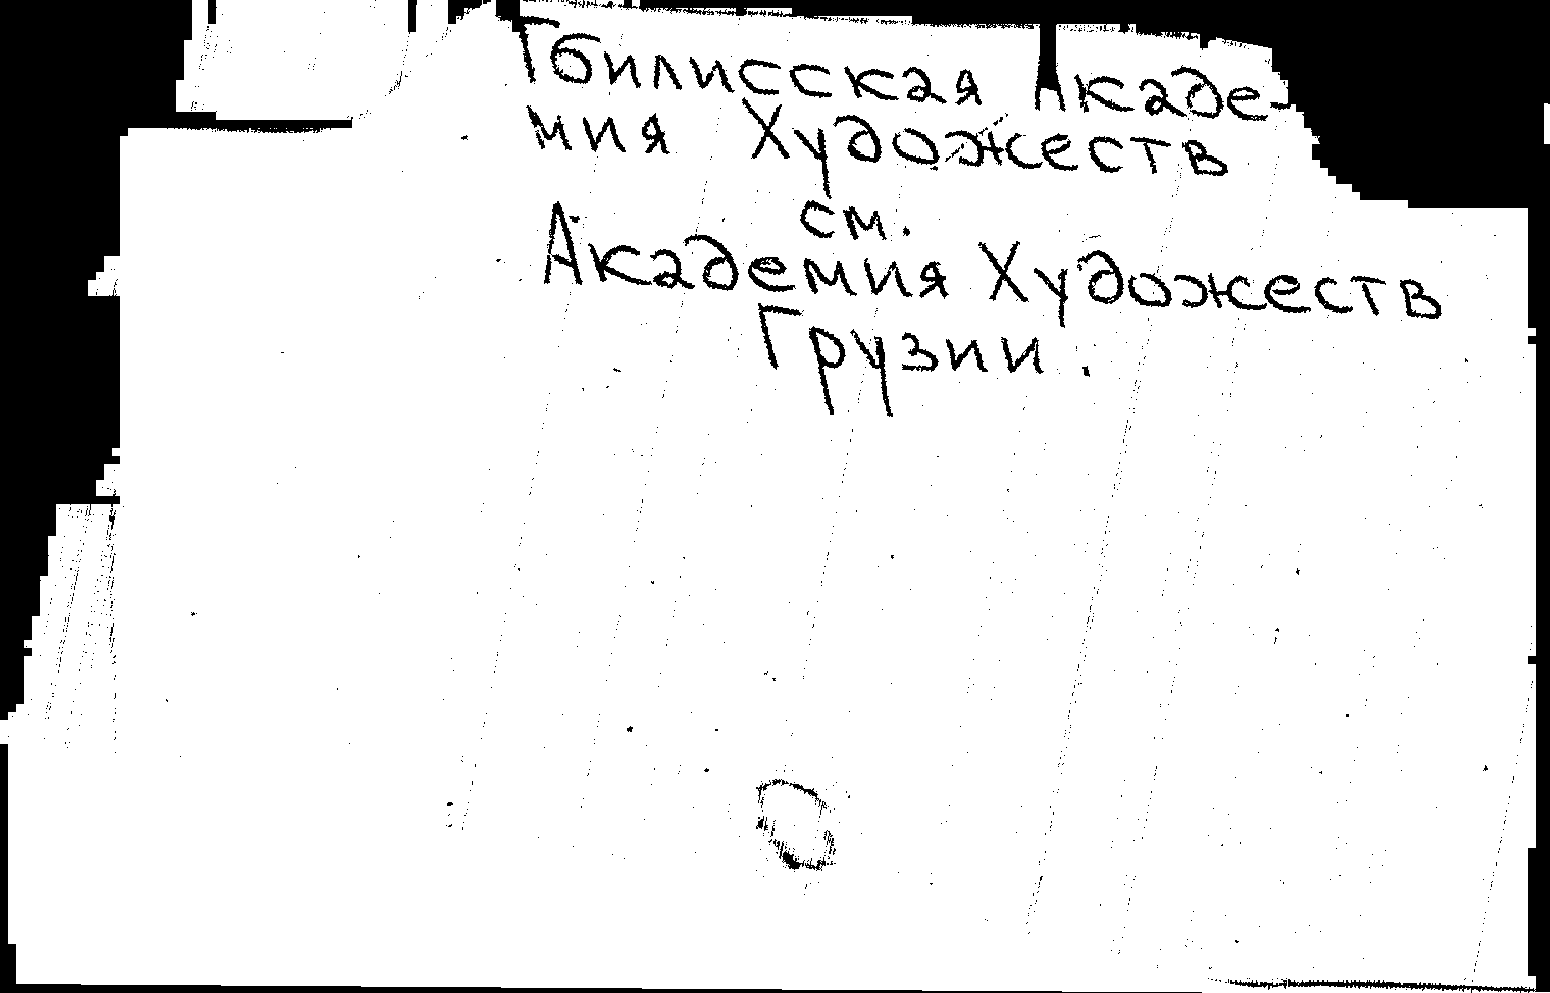 Тбилисская Акаде-
мия Художеств
см.
Академия Художеств
Грузии.